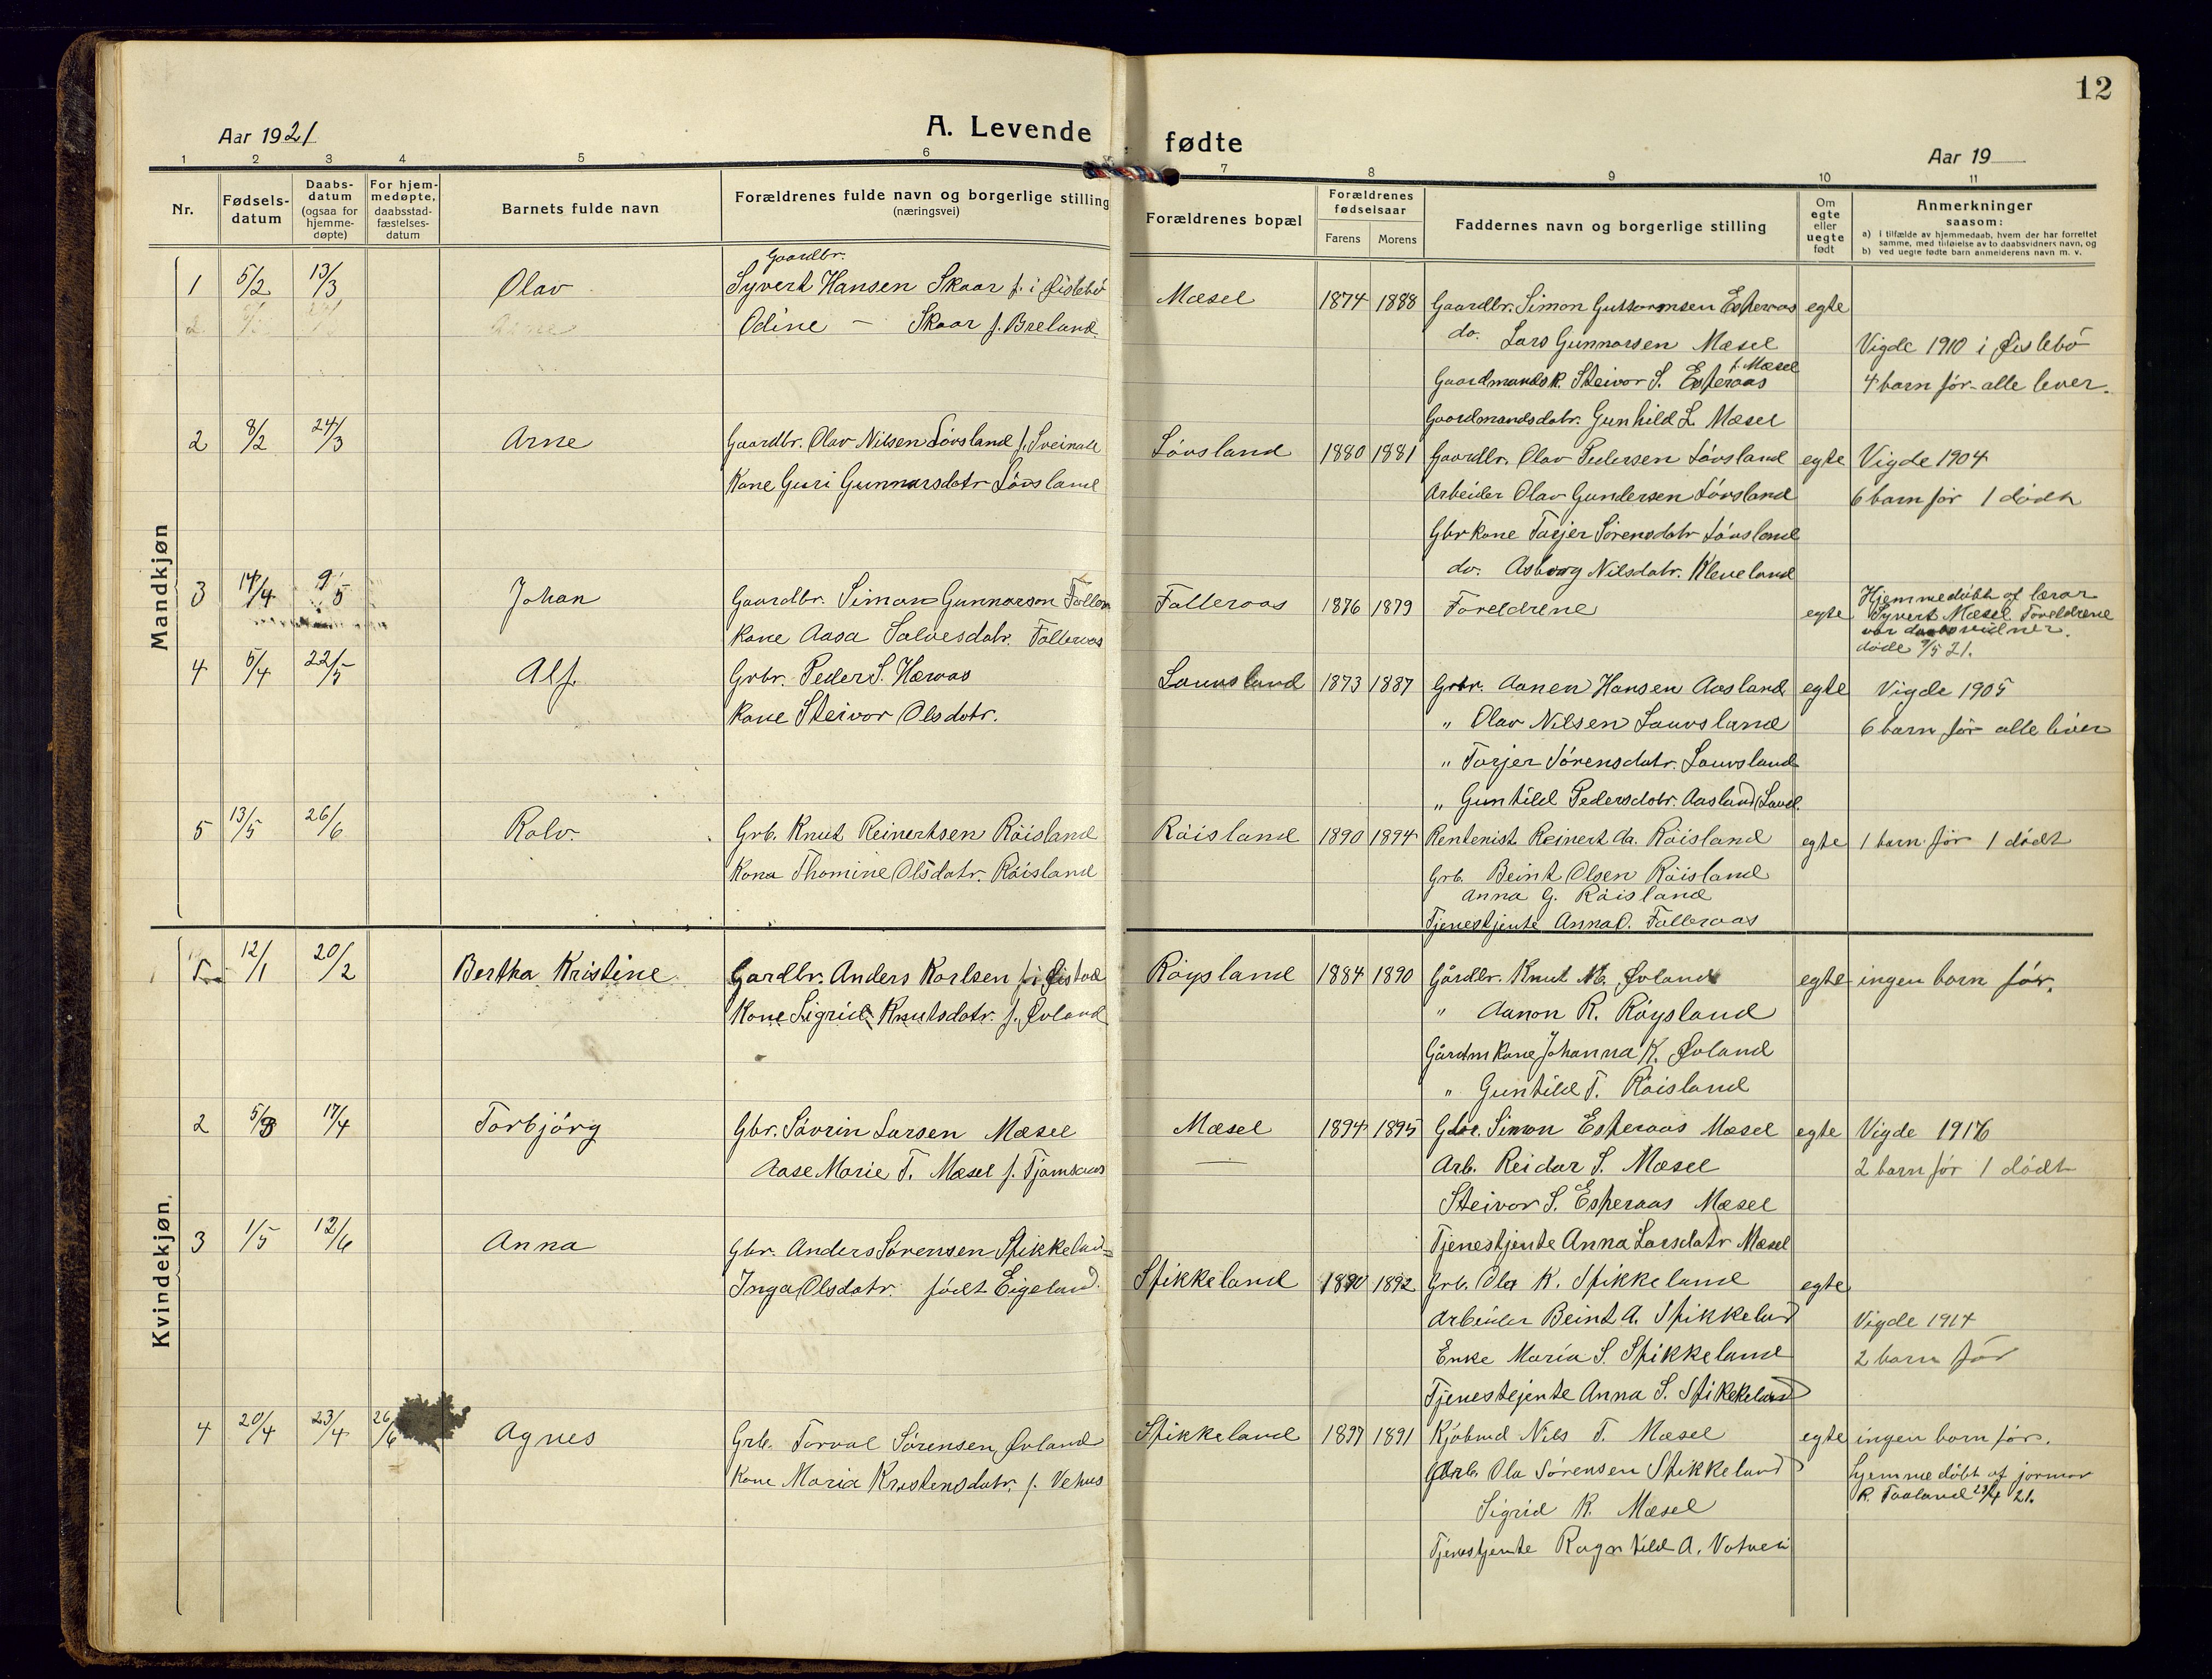 12
Aar 1921
A. Levende fødte
Aar 19
1 2 3 4 5 6 7 8 9 10 11
Nr.
Fødsels-
datum
Daabs-
datum
(ogsaa for
hjemme-
døpte)
For hjem-
medøpte,
daabsstad-
fæstelses-
datum
Barnets fulde navn
Forældrenes fulde navn og borgerlige stilling
(næringsvei)
Forældrenes bopæl
Forældrenes
fødselsaar
Farens Morens
Faddernes navn og borgerlige stilling
Om
egte
eller
uegte
født
Anmerkninger
saasom:
a) i tilfælde av hjemmedaab, hvem der har forrettet
samme, med tilføielse av to daabsvidners navn, og
b) ved uegte fødte barn anmelderens navn m. v.
Mandkjøn
1 5/2 13/3 Olav
Gaardbr.
Syvert Hansen Skaar f. i Øislebö
Odine — Skaar f. Breland.
Mæsel 1874 1888
Gaardbr. Simon Guttormsen Esperaas egte
do. Lars Gunnarsen Mæsel
Gaardmandsk. Steivor S. Esperaas f. Mæsel
Gaardmandsdatr. Gunhild L. Mæsel
Vigde 1910 i Øislebö
4 barn för - alle lever.
2 8/2 24/3 Arne
Gaardbr. Olav Nilsen Lövsland f. Sveinall
Kone Guri Gunnarsdatr Lövsland
Lövsland 1880 1881
Gaardbr. Olav Pedersen Lövsland egte
Arbeider Olav Gundersen Lövsland
Gbrkone Tarjer Sörensdatr Lövsland
do. Asborg Nilsdatr. Kleveland
Vigde 1904
6 barn för 1 dödt
3 14/4 9/5 Johan
Gaardbr. Simon Gunnarson Falleraas
Kone Aasa Salvesdatr. Falleraas
Falleraas 1876 1879 Foreldrene egte
Hjemmedöbt af lærar
Syvert Mæsel Foreldrene
var daabsvidner.
döde 9/5 21.
4 5/4 22/5 Alf.
Grbr. Peder S. Hæraas
Kone Steivor Olsdatr.
Lauvsland 1873 1887
Grbr. Aanen Hansen Aasland egte
" Olav Nilsen Lauvsland
" Tarjer Sörensdatr. Lauvsland
" Gunhild Pedersdatr. Aasland
Vigde 1905
6 barn för alle liver
5 13/5 26/6 Rolv.
Grb. Knut Reinertsen Röisland
Kona Thomine Olsdatr. Röisland
Röisland 1890 1894
Rentenist Reinert Aa. Röisland egte
Grb. Beint Olsen Röisland
Anna G. Röisland
Tjenestjente Anna O. Falleraas
1 barn för 1 dödt
Kvindekjøn.
1 12/1 20/2 Bertha Kristine
Gardbr. Anders Karlsen f. i Øistad
Kone Sigrid Knutsdatr. f. Øvland
Röysland 1884 1890
Gårdbr. Knut M. Øvland egte
" Aanon R. Röysland
Gårdmkone Johanna K. Øvland
" Gunhild T. Röisland
ingen barn för.
2 5/3 17/4 Torbjörg
Gbr. Sövrin Larsen Mæsel
Aase Marie T. Mæsel f. Tjomsaas
Mæsel 1894 1895
Gbr. Simon Esperaas Mæsel egte
Arb. Reidar S. Mæsel
Steivor S. Esperaas Mæsel
Tjenestjente Anna Larsdatr Mæsel
Vigde 1916
2 barn för 1 dödt
3 1/5 12/6 Anna
Gbr. Anders Sörensen Spikkeland
Inga Olsdatr. födt Eigeland.
Spikkeland 1890 1892
Grb. Ola K. Spikkeland egte
Arbeider Beint A. Spikkeland
Enke Maria S. Spikkeland
Tjenestejente Anna S. Spikkeland
Vigde 1914
2 barn för
4 20/4 23/4 26/6 Agnes
Grb. Torval Sörensen Øvland
Kone Maria Kristensdatr. f. Vehus
Spikkeland 1897 1891
Kjöbmd Nils T. Mæsel egte
Grb. Ola Sörensen Spikkeland
Sigrid K. Mæsel
Tjenestjente Ragnhild A. Vatneli
ingen barn för.
hjemmedöbt af jormor
K. Faaland 23/4 21.